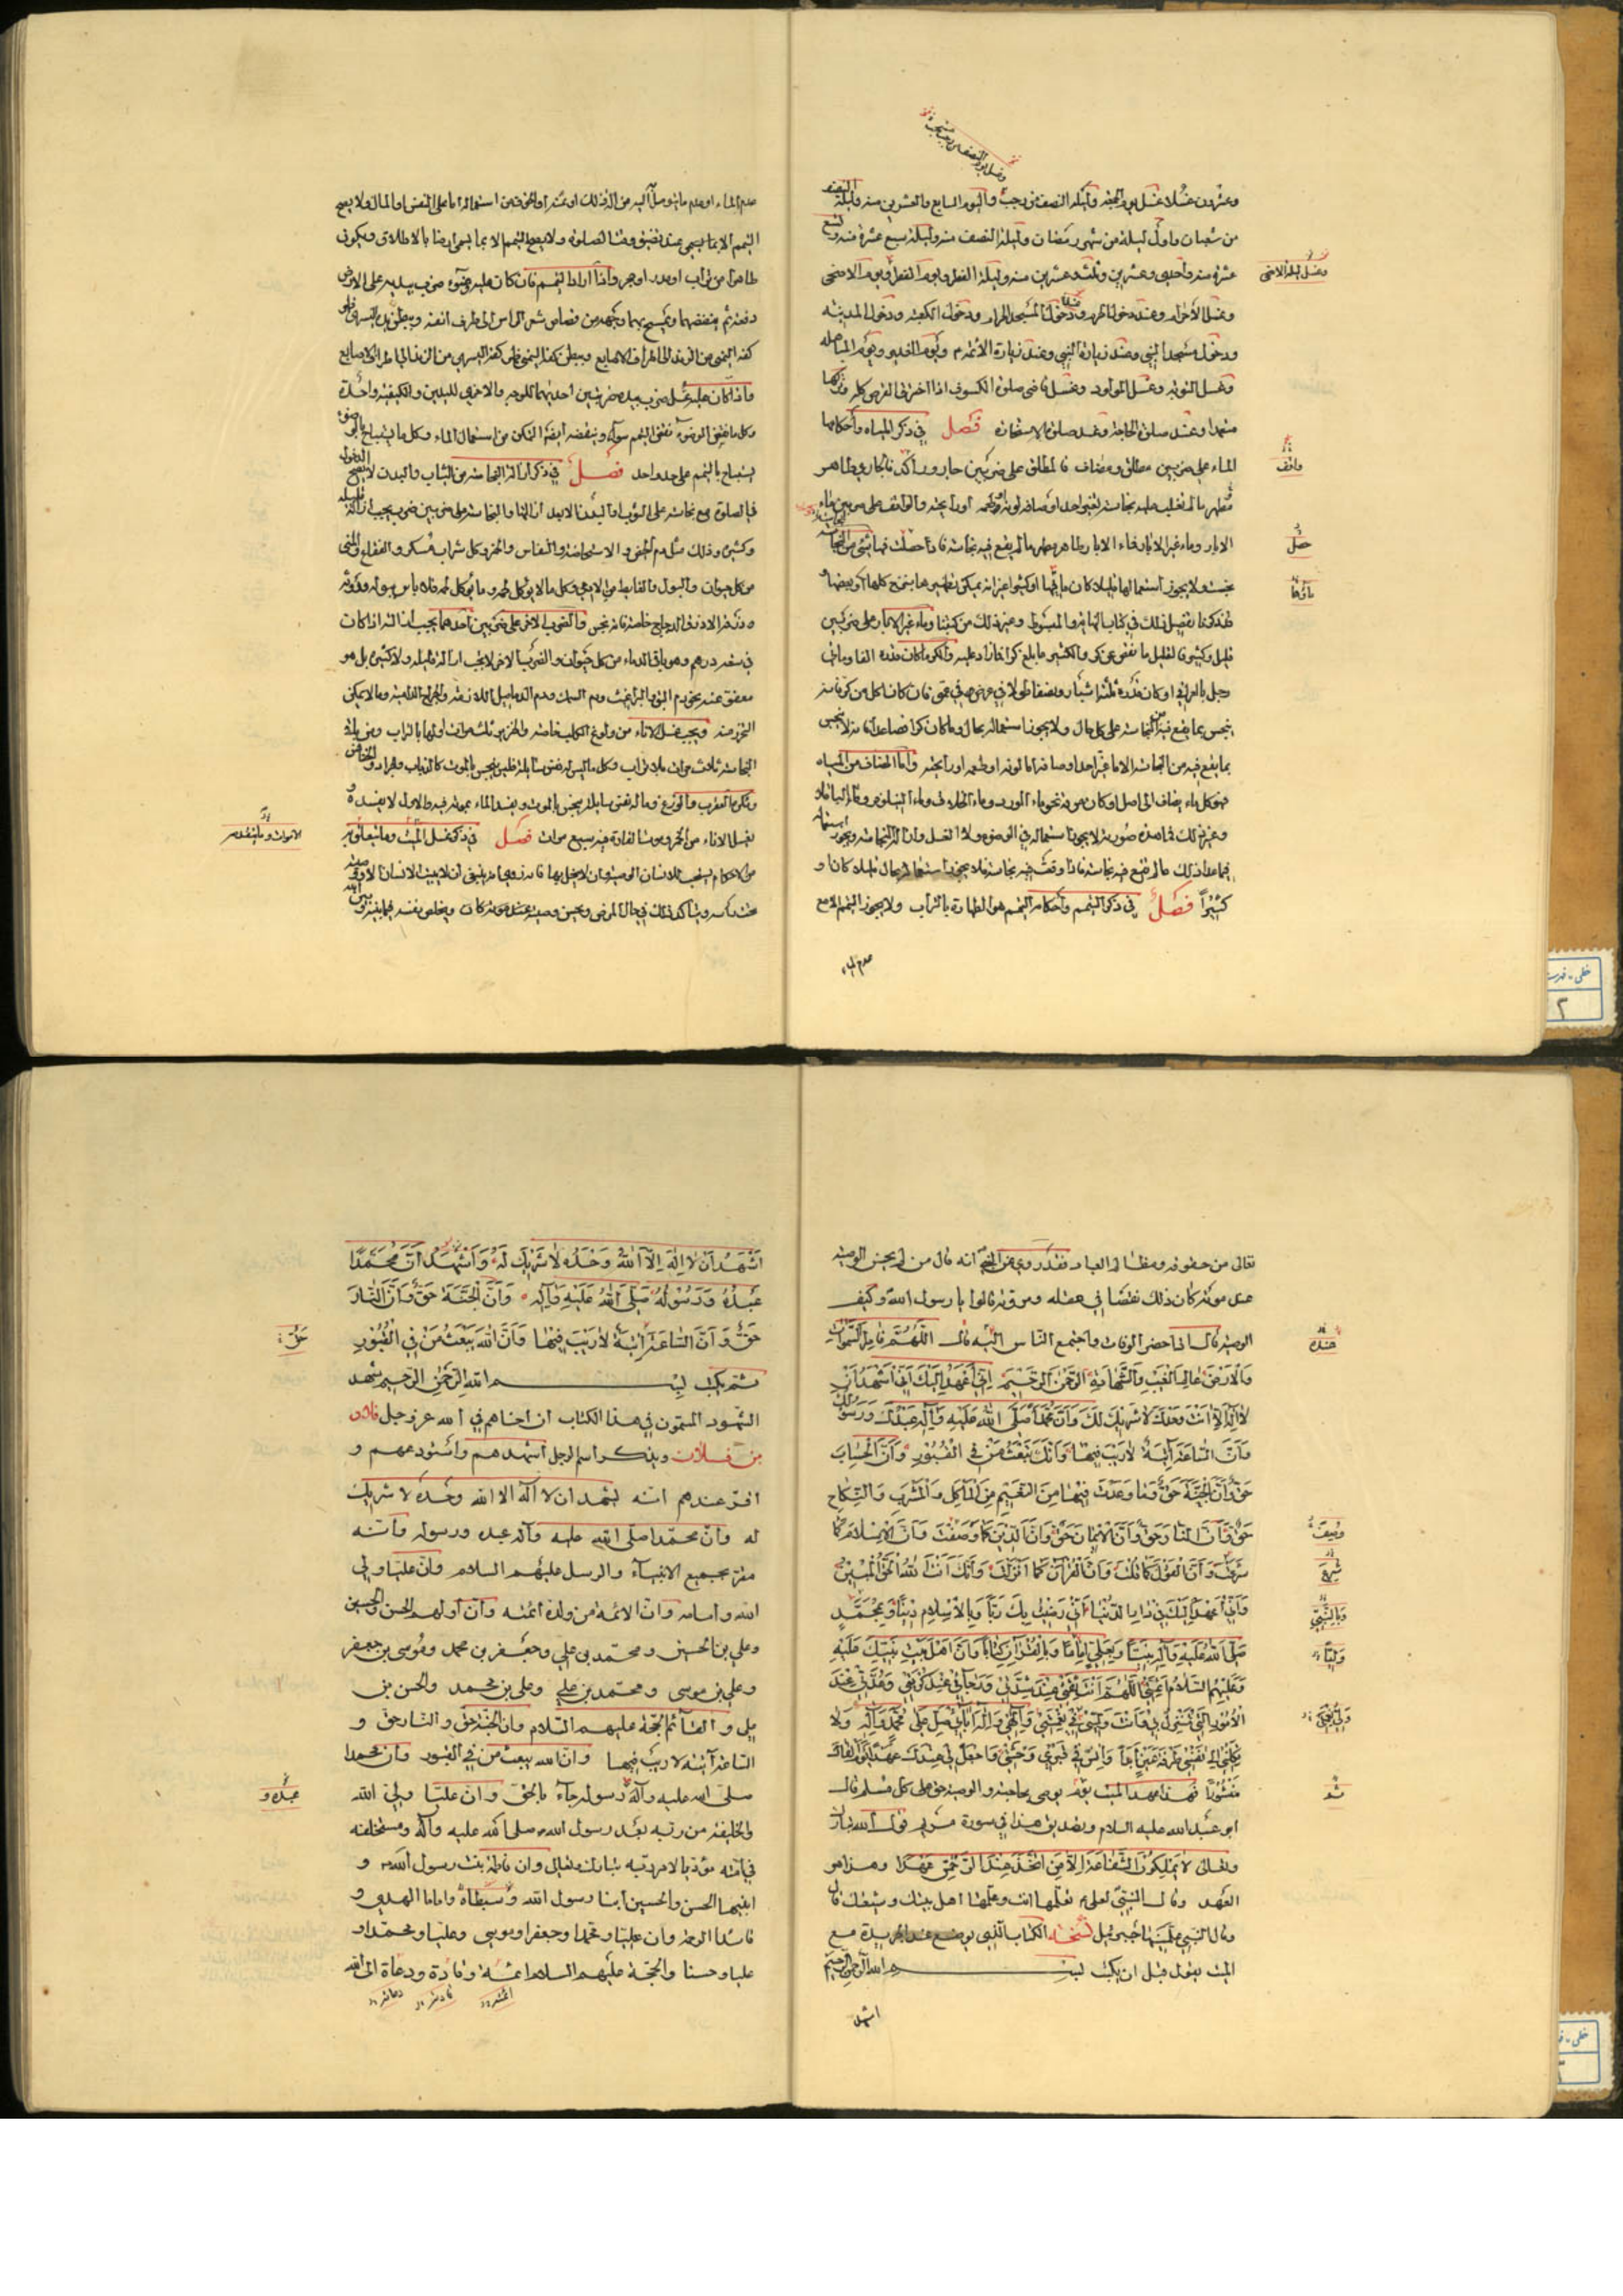 وعشرون غسلا غسل يوم الجمعة وليلة النصف من رجب واليوم السابع والعشرين منه وليلة النصف
من شعبان واول ليلة من شهر رمضان وليلة النصف منه وليلة سبع عشرة منه وتسع
عشرة منه واحدى وعشرين وثلث وعشرين منه وليلة الفطر ويوم الفطر ويوم الاضحى
وغسل ليلة الاضحى
وغسل الاحرام وعند دخول الحرم وعند دخول المسجد الحرام ودخول الكعبة ودخول المدينة
ودخول مسجد النبي وعند زيارة النبي وعند زيارة الائمة ويوم الغدير ويوم المباهلة
وغسل التوبة وغسل المولود وغسل قاضى صلوة الكسوف اذا احترق القرص كله وتركها
متعمدا وعند صلوة الحاجة وعند صلوة الاستخارة فصل في ذكر المياه واحكامها
الماء على ضربين مطلق ومضاف فالمطلق على ضربين جار وراكد فالجاري طاهر
واقف
مطهر ما لم تغلب عليه نجاسة تغير احد اوصافه لونه او طعمه او رايحته والواقف على ضربين ماء
الابار وماء غير الابار فماء الابار طاهر مطهر ما لم يقع فيه نجاسة فاذا حصلت فيها شئ من النجاسة
حصل
نجست ولا يجوز استعمالها قليلا كان ماؤها او كثيرا غير انه يمكن تطهيرها بنزح كلها او بعضها و
ماؤها
قد ذكرنا تفصيل ذلك في كتاب النهاية والمبسوط وغير ذلك من كتبنا وماء غير الابار على ضربين
قليل وكثير فالقليل ما نقص عن كر والكثير ما بلغ كرا فازاد عليه والكر ما كان قدره الفا ومائتي
رطل بالعراقي او كان قدره ثلثة اشبار ونصفا طولا في عرض في عمق فان كان اقل من كر فانه
ينجس بما يقع فيه من النجاسة على كل حال ولا يجوز استعماله بحال وما كان كرا فصاعدا فانه لا ينجس
بما يقع فيه من النجاسة الا ما غير احد اوصافه اما لونه او طعمه او رايحته واما المضاف من المياه
فهو كل ماء يضاف الى اصل او كان مرقة نحو ماء الورد وماء الخلاف وماء النيلوفر وماء الباقلا
وغير ذلك فما هذه صورته لا يجوز استعماله في الوضوء ولا الغسل وازالة النجاسة ويجوز استعماله
فيما عدا ذلك ما لم تقع فيه نجاسة فاذا وقعت فيه نجاسة فلا يجوز استعماله بحال قليلا كان او
كثيرا فصل في ذكر التيمم واحكامه التيمم هو الطهارة بالتراب ولا يجوز التيمم الا مع
عدم الماء
عدم الماء او عدم ما يتوصل به اليه من الة ذلك او ثمنه او الخوف من استعماله اما على النفس او المال ولا يصح
التيمم الا بما يسمى عند تضيق وقت الصلوة ولا يصح التيمم الا بما يسمى ارضا بالاطلاق ويكون
طاهرا من تراب او مدر او حجر واذا اراد التيمم فان كان عليه وضوء ضرب بيديه على الارض
دفعة ثم ينفضهما ويمسح بهما وجهه من قصاص شعر الراس الى طرف انفه وببطن يده اليسرى ظهر
كفه اليمنى من الزند الى اطراف الاصابع وببطن كفه اليمنى ظهر كفه اليسرى من الزند الى اطراف الاصابع
واذا كان عليه غسل ضرب بيده ضربتين احديهما للوجه والاخرى لليدين والكيفية واحدة
وكل ما نقض الوضوء نقض التيمم سواء وينقضه ايضا التمكن من استعمال الماء وكل ما يستباح بالوضوء
يستباح بالتيمم على حد واحد فصل في ذكر ازالة النجاسة من الثياب والبدن لا يصح الدخول
في الصلوة مع نجاسة على الثوب او البدن الا بعد ازالتها والنجاسة على ضربين ضرب يجب ازالة قليله
وكثيره وذلك مثل دم الحيض والاستحاضة والنفاس والخمر وكل شراب مسكر والفقاع والمنى
من كل حيوان والبول والغايط من الادمي وكل ما لا يؤكل لحمه وما يؤكل لحمه فلا باس ببوله وروثه
وذرقه الا ذرق الدجاج خاصة فانه نجس والضرب الاخر على ضربين احدهما يجب ازالته اذا كان
في سعة درهم وهو باقى الدماء من كل حيوان والضرب الاخر لا يجب ازالة قليله ولا كثيره بل هو
معفو عنه نحو دم البق والبراغيث ودم السمك ودم الدماميل اللازمة والجراح الدامية وما لا يمكن
التحرز منه ويجب غسل الاناء من ولوغ الكلب خاصة والخنزير ثلث مرات اوليها بالتراب ومن باقي
النجاسة ثلاث مرات بلا تراب وكل ما ليس له نفس سايلة فليس ينجس بالموت كالذباب والجراد والخنافس
الاموات وما يتعلق به
لغسل الاناء من الخمر وموت الفارة فيه سبع مرات فصل في ذكر غسل الميت وما يتعلق به
من الاحكام يستحب للانسان الوصية وان لا يخل بها فانه روي انه ينبغي ان لا يبيت الانسان الا ووصيته
تحت رأسه ويتأكد ذلك في حال المرض ويحسن وصيته عند موته ويخلص نفسه فيما بينه وبين الله
تعالى من حقوقه ومظالم العباد فقد روي عن النبي انه قال من لم يحسن الوصية
عند موته كان ذلك نقصا في عقله ومروته قالوا يا رسول الله وكيف
الوصية قال اذا حضرته الوفات واجتمع الناس اليه قال اللهم فاطر السموات
عنده
وَالْاَرْضِ عَالِمَ الْغَيْبِ وَالشَّهَادَةِ الرَّحْمٰنَ الرَّحِيْمَ اِنِّي اَعْهَدُ اِلَيْكَ اَنِّي اَشْهَدُ اَنْ
لَا اِلٰهَ اِلَّا اَنْتَ وَحْدَكَ لَا شَرِيْكَ لَكَ وَاَنَّ مُحَمَّدًا صَلَّى اللّٰهُ عَلَيْهِ وَاٰلِهِ عَبْدُكَ وَرَسُوْلُكَ
وَاَنَّ السَّاعَةَ اٰتِيَةٌ لَا رَيْبَ فِيْهَا وَاَنَّكَ تَبْعَثُ مَنْ فِى الْقُبُوْرِ وَاَنَّ الْحِسَابَ
حَقٌّ وَاَنَّ الْجَنَّةَ حَقٌّ وَمَا وَعَدْتَ فِيْهَا مِنَ النَّعِيْمِ مِنَ الْمَأْكَلِ وَالْمَشْرَبِ وَالنِّكَاحِ
حَقٌّ وَاَنَّ النَّارَ حَقٌّ وَاَنَّ الْاِيْمَانَ حَقٌّ وَاَنَّ الدِّيْنَ كَمَا وَصَفْتَ وَاَنَّ الْاِسْلَامَ كَمَا
شَرَعْتَ وَاَنَّ الْقَوْلَ كَمَا قُلْتَ وَاَنَّ الْقُرْاٰنَ كَمَا اَنْزَلْتَ وَاَنَّكَ اَنْتَ اللّٰهُ الْحَقُّ الْمُبِيْنُ
وَاَنِّي اَعْهَدُ اِلَيْكَ فِي دَارِ الدُّنْيَا اَنِّي رَضِيْتُ بِكَ رَبًّا وَبِالْاِسْلَامِ دِيْنًا وَبِمُحَمَّدٍ
وَبِالنَّبِيِّ
صَلَّى اللّٰهُ عَلَيْهِ وَاٰلِهِ نَبِيًّا وَبِعَلِيٍّ اِمَامًا وَبِالْقُرْاٰنِ كِتَابًا وَاَنَّ اَهْلَ بَيْتِ نَبِيِّكَ عَلَيْهِ
وَلِيًّا
وَعَلَيْهِمُ السَّلَامُ اَئِمَّتِيْ اَللّٰهُمَّ اَنْتَ ثِقَتِيْ عِنْدَ شِدَّتِيْ وَرَجَائِيْ عِنْدَ كُرْبَتِيْ وَعُدَّتِيْ عِنْدَ
الْاُمُوْرِ الَّتِيْ تَنْزِلُ بِيْ وَاَنْتَ وَلِيِّيْ فِيْ نِعْمَتِيْ وَاِلٰهِيْ وَاِلٰهُ اٰبَائِيْ صَلِّ عَلٰى مُحَمَّدٍ وَاٰلِهِ وَلَا
تَكِلْنِيْ اِلٰى نَفْسِيْ طَرْفَةَ عَيْنٍ اَبَدًا وَاٰنِسْ فِيْ قَبْرِيْ وَحْشَتِيْ وَاجْعَلْ لِيْ عِنْدَكَ عَهْدًا يَوْمَ اَلْقَاكَ
مَنْشُوْرًا فهذا عهد الميت يوم يوصى بحاجته والوصية حق على كل مسلم قال
ابو عبد الله عليه السلام وتصديق هذا في سورة مريم قول الله تبارك
وتعالى لا يَمْلِكُوْنَ الشَّفَاعَةَ اِلَّا مَنِ اتَّخَذَ عِنْدَ الرَّحْمٰنِ عَهْدًا وهذا هو
العهد وقال النبي لعلي تعلمها انت وعلمها اهل بيتك وشيعتك قال
وقال النبي علمنيها جبرئيل نسخة الكتاب الذي يوضع عند الجريدة مع
الميت يقول قبل ان يكتب بسم الله الرحمن الرحيم
اشهد
اَشْهَدُ اَنْ لَا اِلٰهَ اِلَّا اللّٰهُ وَحْدَهُ لَا شَرِيْكَ لَهُ وَاَشْهَدُ اَنَّ مُحَمَّدًا
عَبْدُهُ وَرَسُوْلُهُ صَلَّى اللّٰهُ عَلَيْهِ وَاٰلِهِ وَاَنَّ الْجَنَّةَ حَقٌّ وَاَنَّ النَّارَ
حَقٌّ وَاَنَّ السَّاعَةَ اٰتِيَةٌ لَا رَيْبَ فِيْهَا وَاَنَّ اللّٰهَ يَبْعَثُ مَنْ فِي الْقُبُوْرِ
حَقٌّ
ثم يكتب بسم الله الرحمن الرحيم شهد
الشهود المسمون في هذا الكتاب ان اخاهم في الله عز وجل فلان
بن فلان ويذكر اسم الرجل اشهدهم واستودعهم و
اقر عندهم انه يشهد ان لا اله الا الله وحده لا شريك
له وان محمدا صلى الله عليه وآله عبده ورسوله وانه
مقر بجميع الانبياء والرسل عليهم السلام وان عليا ولي
الله وامامه وان الائمة من ولده ائمته وان اولهم الحسن والحسين
وعلي بن الحسين ومحمد بن علي وجعفر بن محمد وموسى بن جعفر
وعلي بن موسى ومحمد بن علي وعلي بن محمد والحسن بن
علي والقائم الحجة عليهم السلام وان الجنة حق والنار حق و
الساعة آتية لا ريب فيها وان الله يبعث من في القبور وان محمدا
صلى الله عليه وآله رسوله جاء بالحق وان عليا ولي الله
عبده و
والخليفة من بعد رسول الله صلى الله عليه وآله ومستخلفه
في امته مؤديا لامر ربه تبارك وتعالى وان فاطمة بنت رسول الله و
ابنيها الحسن والحسين ابنا رسول الله وسبطاه واماما الهدى و
قائدا الرحمة وان عليا ومحمدا وجعفرا وموسى وعليا ومحمدا و
عليا وحسنا والحجة عليهم السلام ائمة وقادة ودعاة الى الله